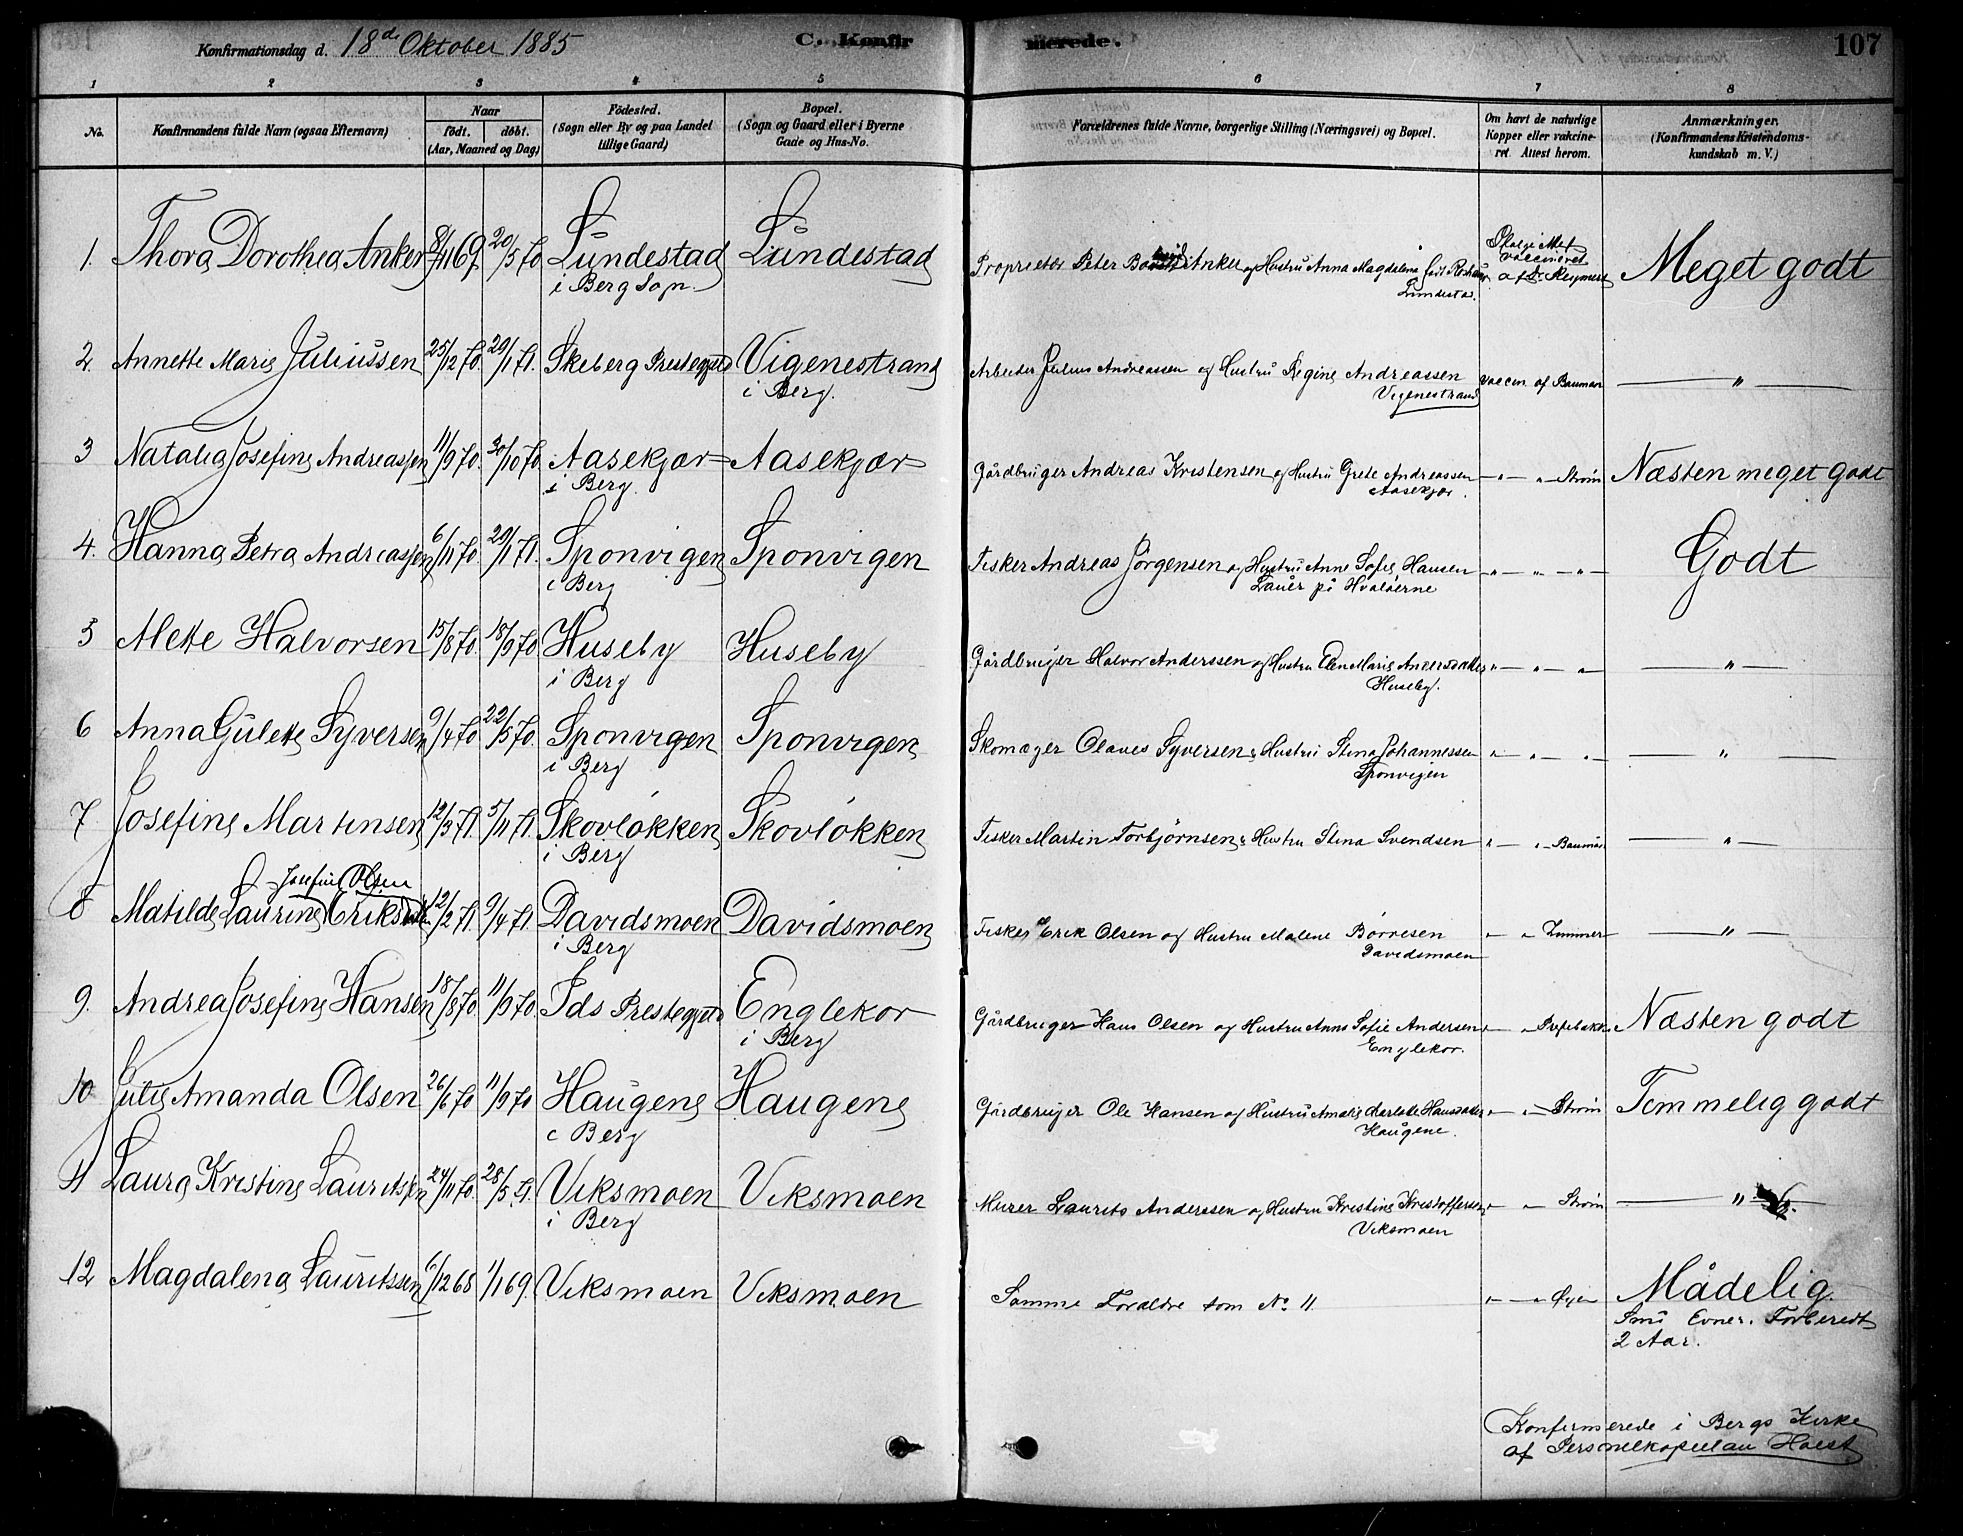 Konfirmationsdag d. 18de Oktober 1885
C. Konfirmerede.
107
1 2 3 4 5 6 7 8
No.
Konfirmandens fulde Navn (ogsaa Efternavn)
Naar
født. døbt.
(Aar, Maaned og Dag)
Fødested.
(Sogn eller By og paa Landet
tillige Gaard)
Bopæl.
(Sogn og Gaard eller i Byerne
Gade og Hus-No.
Forældrenes fulde Navne, borgerlige Stilling (Næringsvei) og Bopæl.
Om havt de naturlige
Kopper eller vakcine-
ret. Attest herom.
Anmærkninger.
(Konfirmandens Kristendoms-
kundskab m. V.)
1. Thora Dorothea Anker 8/11 69 20/5 70 Lundestad Lundestad Proprietær Peter Anker og Hustru Anna Magdalena Meget godt
i Berg Sogn. Lundestad. vaccineret
2 Annette Marie Juliussen 25/12 70. 29/1 71. Skeberg Prestegjeld Vigenestrand Arbeider Julius Andreassen og Hustru Regine Andreassen vaccin. af Bauman — " —
i Berg. Vigenestrand
3 Natalia Josefine Andreassen 11/9 70. 30/10 70 Aasekjær Aasekjær Gårdbruger Andreas Kristensen og Hustru Grete Andreassen — " — " — Strøm Næsten meget godt
i Berg. Aasekjær.
4. Hanna Petra Andreassen 6/11 70. 29/1 71. Sponvigen Sponvigen Fisker Andreas Jørgensen og Hustru Anne Sofie Hansen — " — " — " — Godt
i Berg Lauer på Hvaløerne
5 Mette Halvorsen 15/8 70. 18/9 70. Huseby Huseby Gårdbruger Halvor Anderssen og Hustru Elen Marie " — " — " — " —
i Berg Huseby.
6 Anna Gulette Syversen 9/4 70 22/5 70. Sponvigen Sponvigen Skomager Olaves Syversen & Hustru Stina Johannessen " — " — " — — " —
i Berg Sponvigen
7 Josefine Martinsen 12/3 71. 5/11 71. Skovløkken Skovløkken Fisker Martin Torbjørnsen & Hustru Stina Svendsen " — " — Bauman — " —
i Berg
Josefine Olsen
8 Matilde Laurine 12/2 71 9/4 71. Davidsmoen Davidsmoen Fisker Erik Olsen og Hustru Malene Børresen " — " Zimmer — " —
i Berg Davidsmoen
9. Andrea Josefine Hansen 18/8 70. 11/9 70. Ids Prestegjeld Englekor Gårdbruger Hans Olsen og Hustru Anne Sofie Andersen " — " Næsten godt
i Berg Englekor.
10 Julie Amanda Olsen 26/6 70 11/9 70 Haugene Haugene Gårdbruger Ole Hansen og Hustru Amalie " — " — Strøm Temmelig godt
i Berg Haugene.
11 Laura Kristine Lauritsen 24/11 70. 28/5 71. Viksmoen Viksmoen Murer Laurits Anderssen og Hustru Kristine Kristoffersen " — " Strøm — " —
i Berg Viksmoen
12 Magdalena Lauritssen 6/12 68 1/1 69. Viksmoen Viksmoen Samme Forældre som No 11. " — " Mådelig.
Små Evner. Forberedt
2 Aar.
Konfirmerede i Bergs Kirke
af Personelkapellan Holst